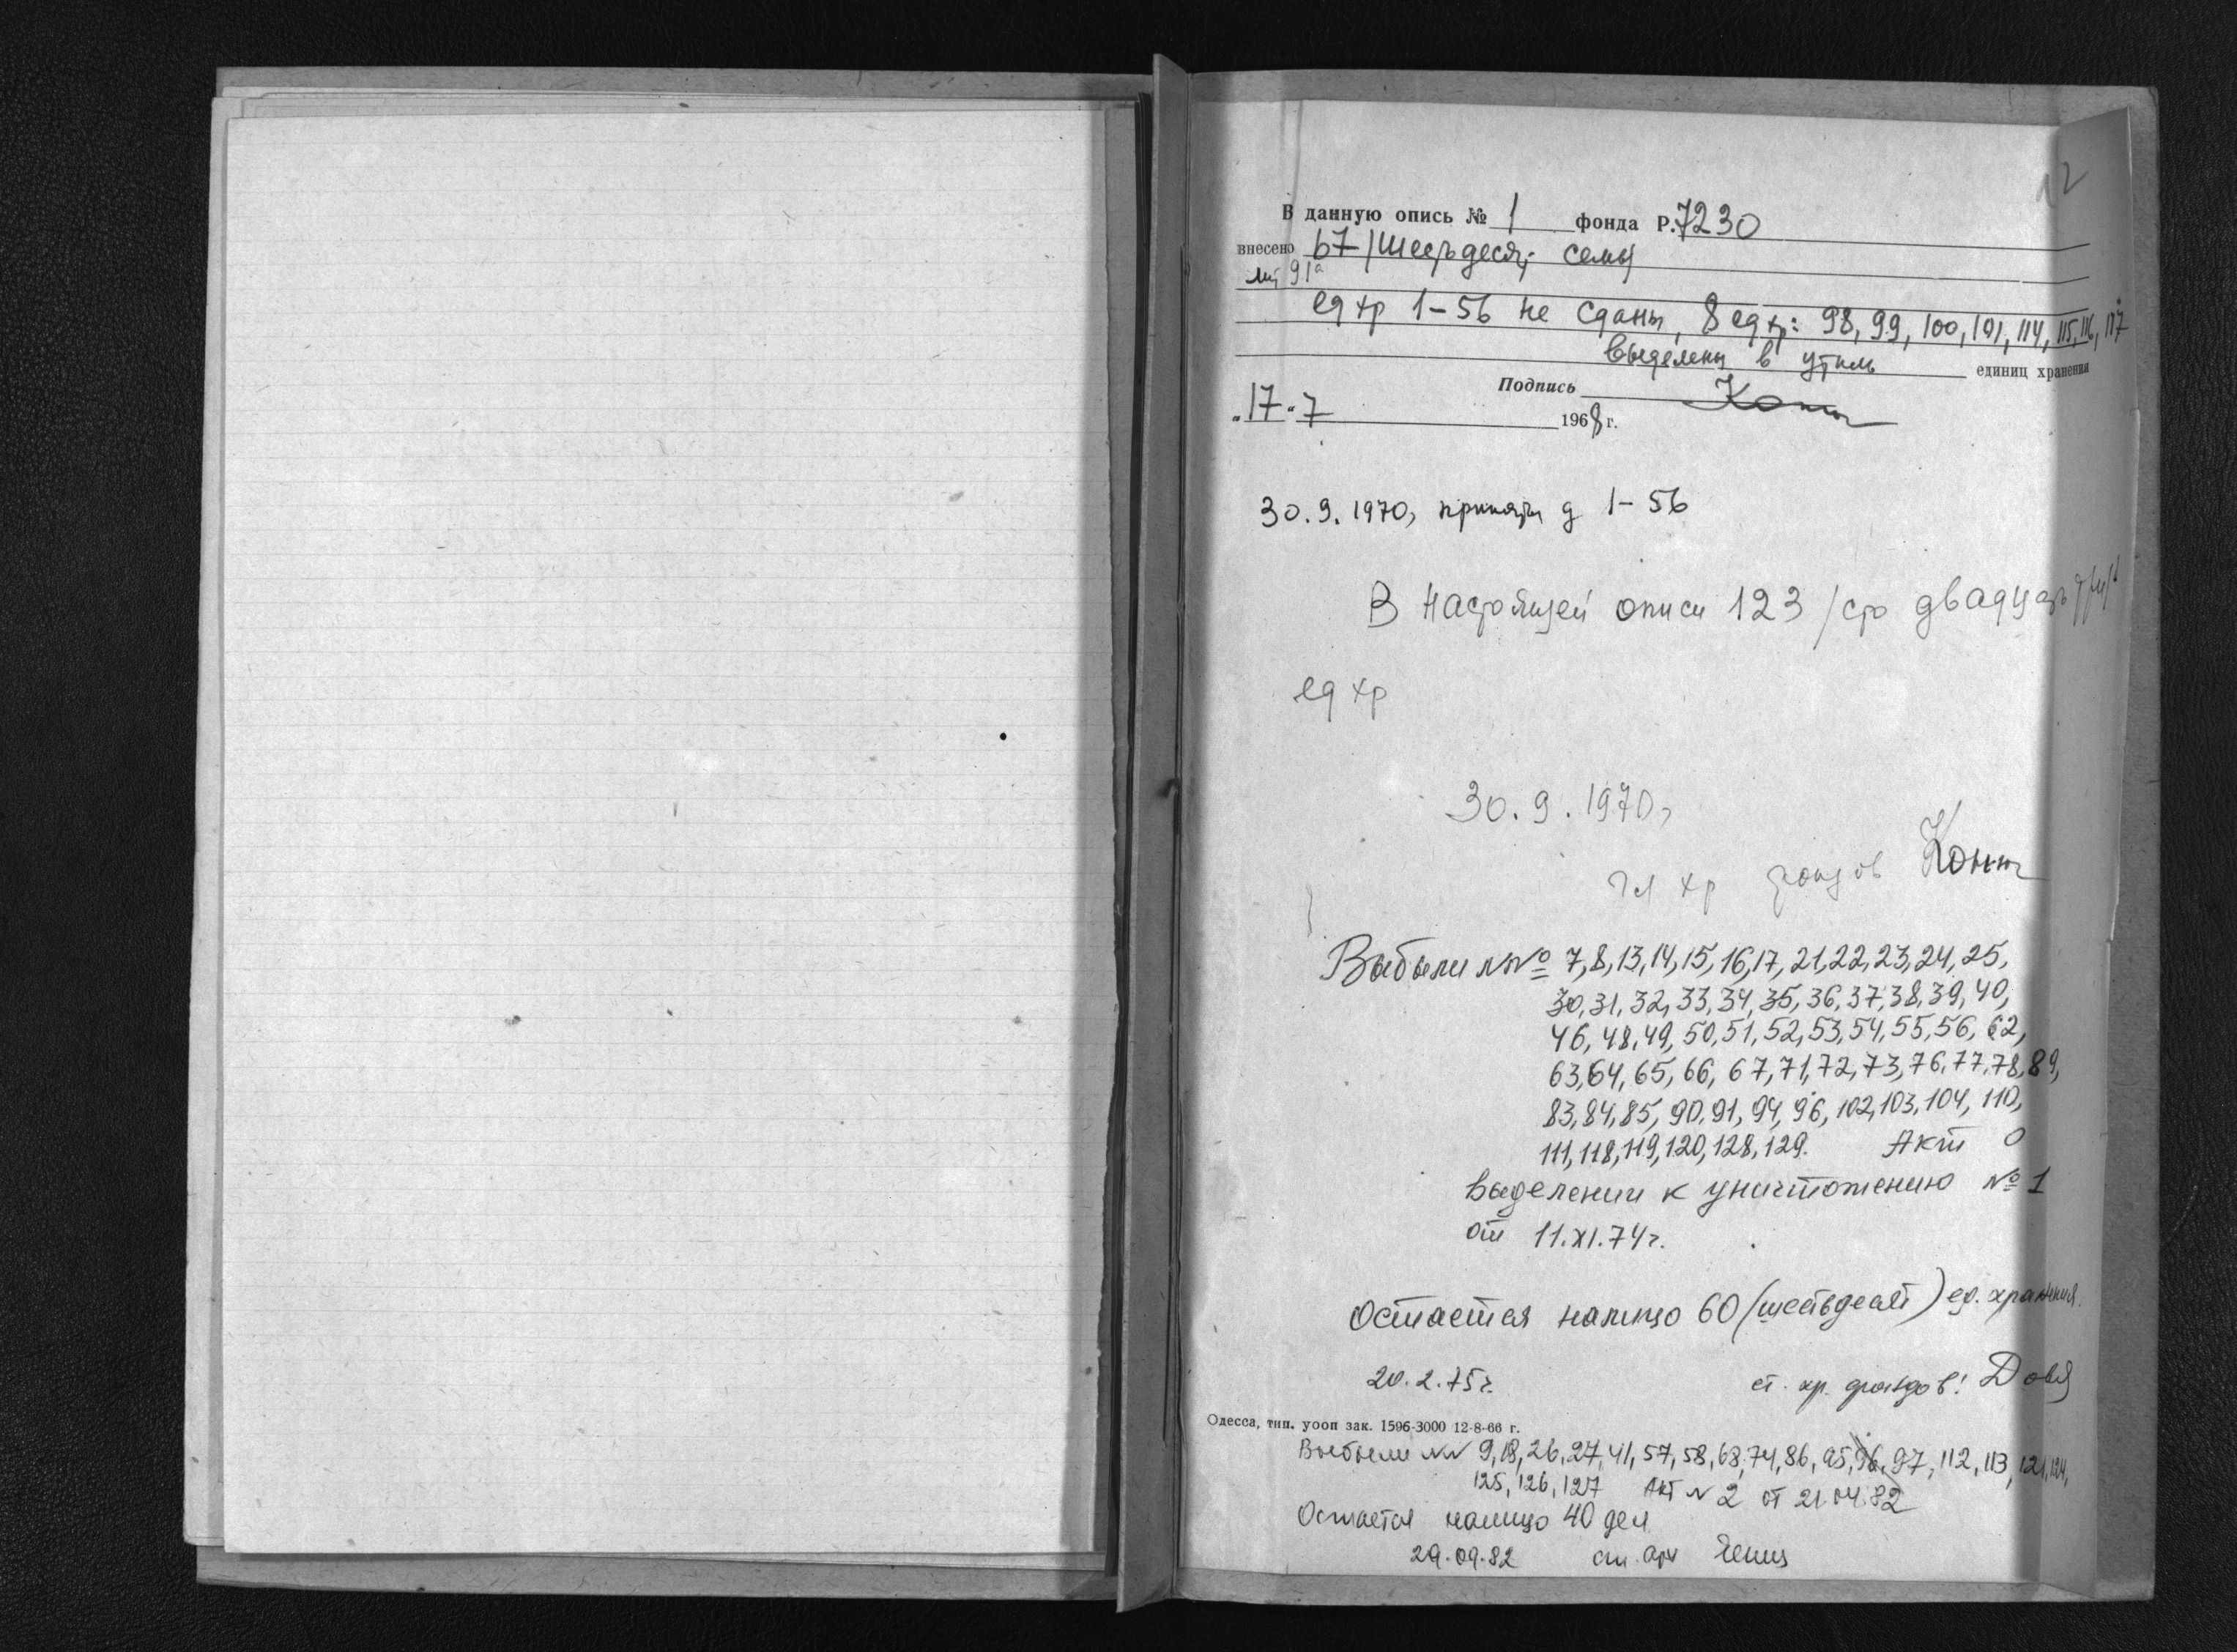 12
В данную опись № 1 фонда Р. 7230
внесено 67 /шестьдесят семь/
лит 91а
ед хр 1-56 не сданы, 8 ед хр: 98, 99, 100, 101, 114, 115, 116, 117
выделены в утиль единиц хранения
Подпись
"17" 7 1968 г.
30.9.1970г приняты д 1-56
В настоящей описи 123 /сто двадцать три/
ед хр
30.9.1970г
гл хр фондов
Выбыли №№ 7,8,13,14,15,16,17,21,22,23,24,25,
30,31,32,33,34,35,36,37,38,39,40,
46,48,49,50,51,52,53,54,55,56,62,
63,64,65,66,67,71,72,73,76,77,78,89,
83,84,85,90,91,94,96,102,103,104,110,
111,118,119,120,128,129. Акт о
выделении к уничтожению № 1
от 11.XI.74г.
Остается налицо 60 (шестьдесят) ед. хранения.
20.2.75г. ст. хр. фондов:
Одесса, тип. уооп зак. 1596-3000 12-8-66 г.
Выбыли №№ 9,18,26,27,41,57,58,68,74,86,95,96,97,112,113,121,124,
125,126,127 Акт № 2 от 21.04.82
Остается налицо 40 дел
29.09.82 ст. арх